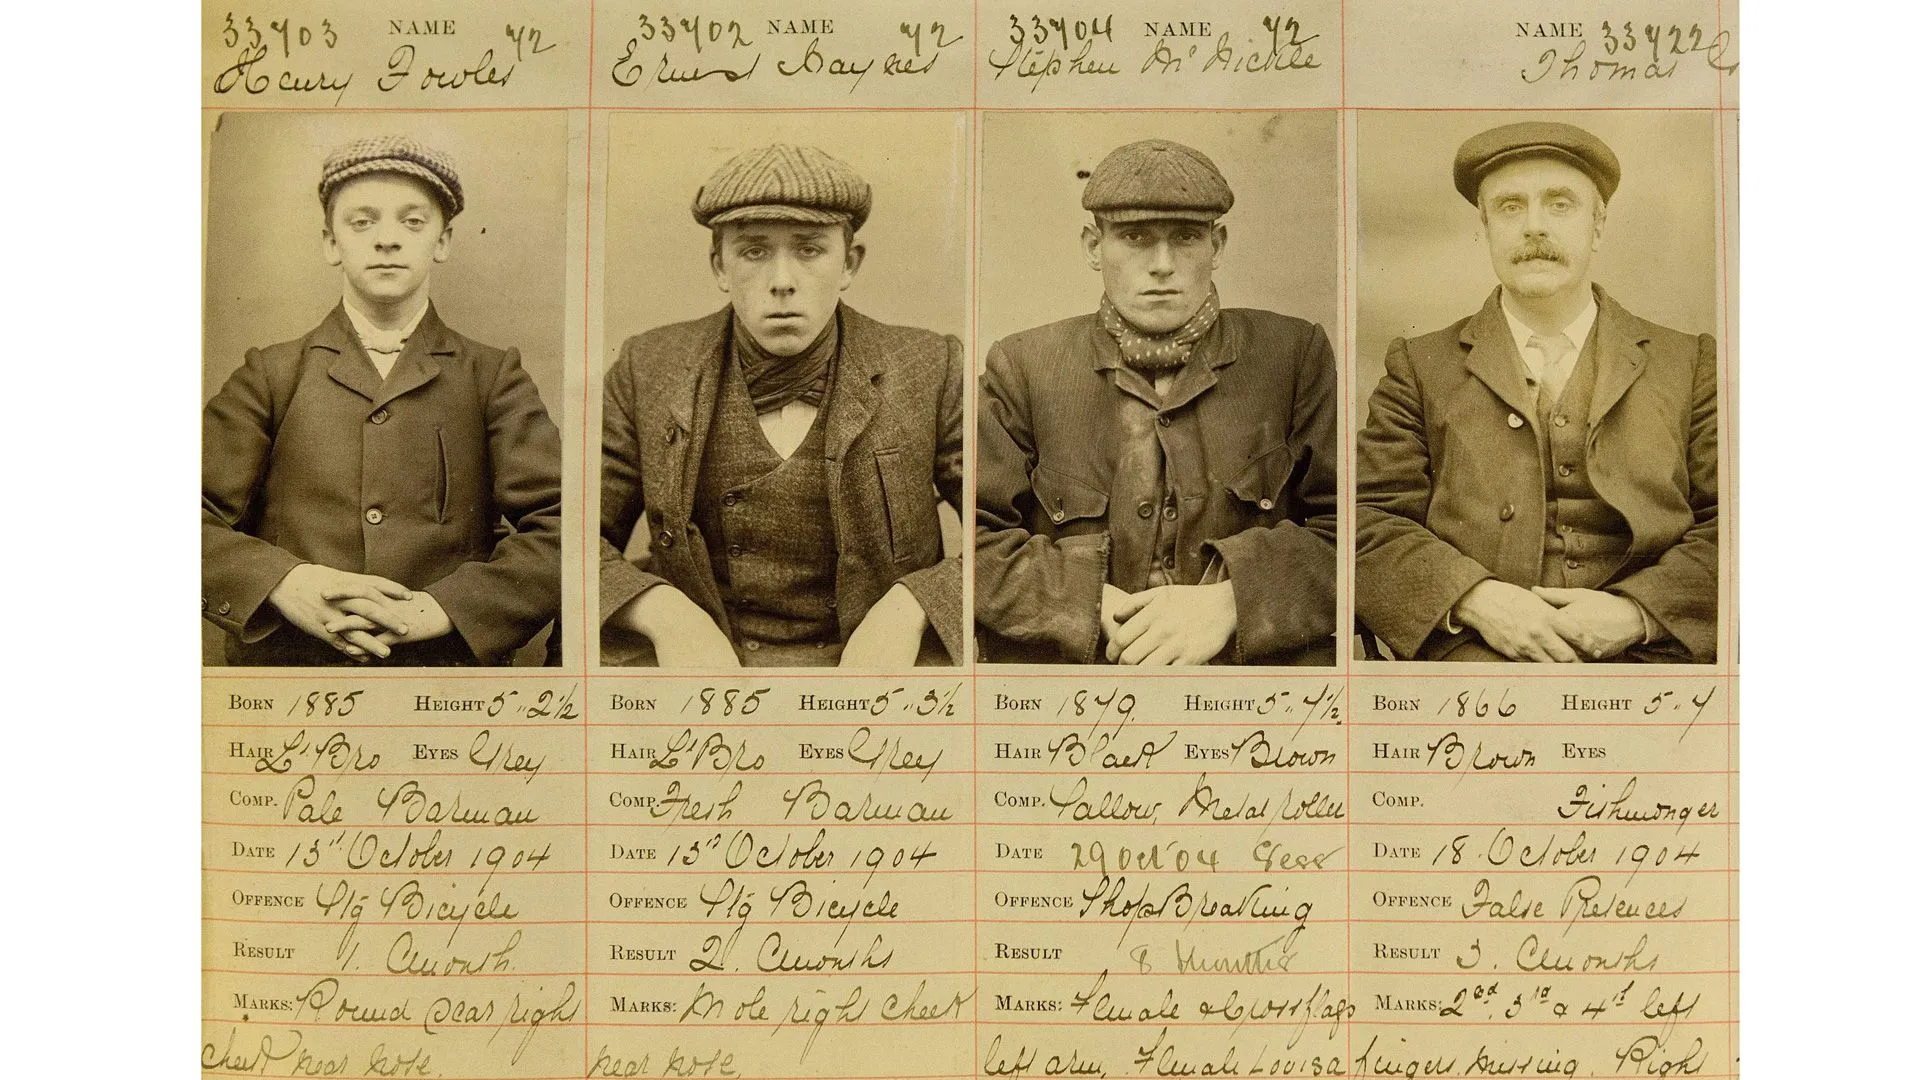 33703 NAME 72
Henry Fowles
33702 NAME 72
Ernest Haynes
33704 NAME 72
Stephen McNickle
NAME 33722
Thomas
BORN 1885 HEIGHT 5..2½
HAIR Lt Bro EYES Grey
COMP. Pale Barman
DATE 13th October 1904
OFFENCE Stg Bicycle
RESULT 1. Cmonth.
MARKS: Round scar right
cheek near nose.
BORN 1885 HEIGHT 5..3½
HAIR Lt Bro EYES Grey
COMP. Fresh Barman
DATE 13th October 1904
OFFENCE Stg Bicycle
RESULT 2. Cmonths
MARKS: Mole right cheek
near nose,
BORN 1879. HEIGHT 5..7½.
HAIR Black EYES Brown
COMP. Sallow, Metal roller
DATE 29 Oct 04 Sess
OFFENCE ShopBreaking
RESULT 8 Months
MARKS: Female & Crossflags
left arm, Female Louisa
BORN 1866 HEIGHT 5..7
HAIR Brown EYES
COMP. Fishmonger
DATE 18. October 1904
OFFENCE False Pretences
RESULT 3. Cmonths
MARKS: 2nd. 3rd & 4th left
fingers missing. Right